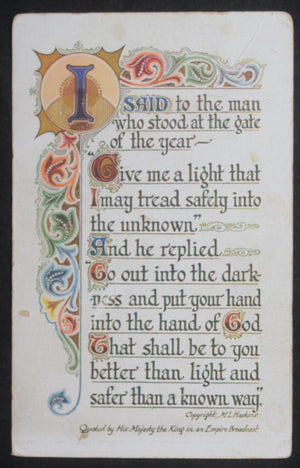 I SAID to the man
who stood at the gate
of the year—
"Give me a light that
I may tread safely into
the unknown."
And he replied
"Go out into the dark-
ness and put your hand
into the hand of God
That shall be to you
better than light and
safer than a known way."
Copyright, M.L. Haskins.
Quoted by His Majesty the King in an Empire Broadcast.